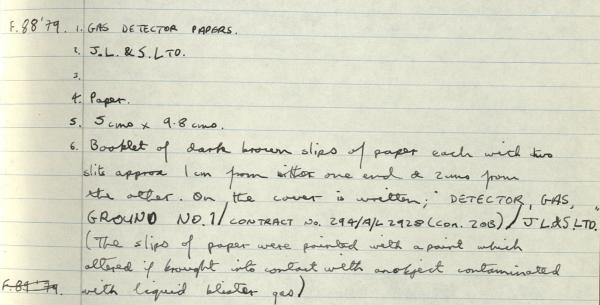 F.88'79. 1. GAS DETECTOR PAPERS.
2. J.L. & S. LTD.
3.
4. Paper.
5. 5 cms x 9.8 cms.
6. Booklet of dark brown slips of paper each with two
slits approx 1 cm from either one end & 2 cms from
the other. On the cover is written; "DETECTOR, GAS,
GROUND NO.1/CONTRACT No. 294/A/L 2928 (CON. 20B)/J.L&S.LTD."
(The slips of paper were painted with a paint which
altered if brought into contact with an object contaminated
F.81'79. with liquid blister gas)